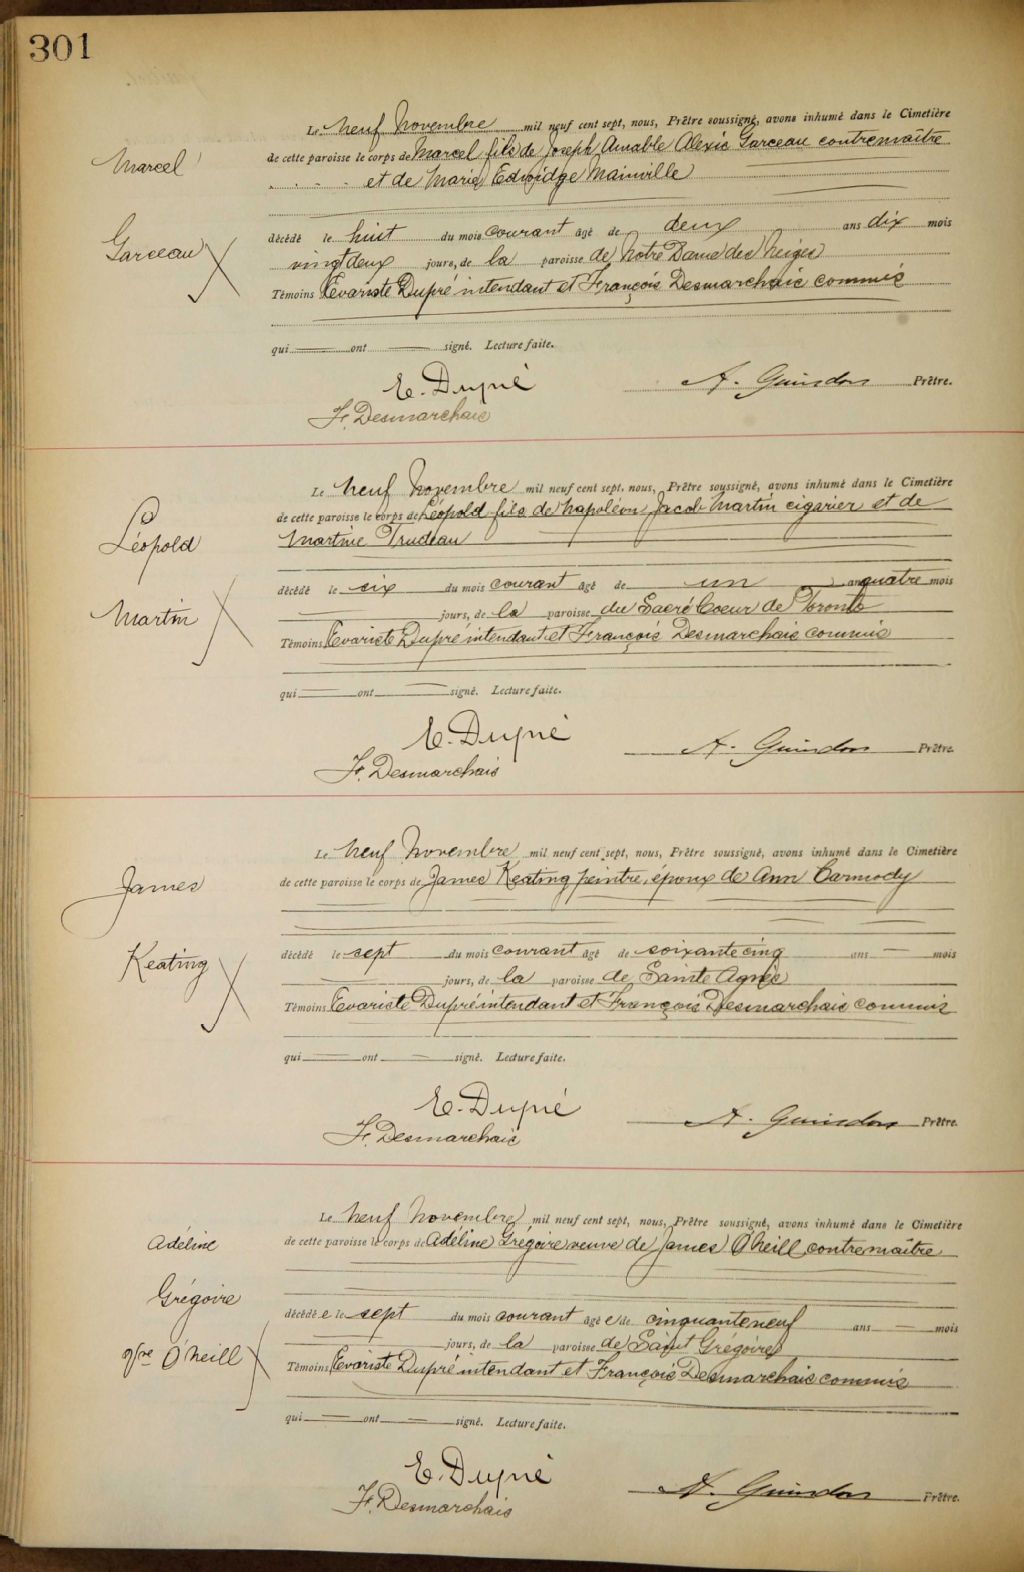 301
Marcel
Garceau
Le neuf Novembre mil neuf cent sept, nous, Prêtre soussigné, avons inhumé dans le Cimetière
de cette paroisse le corps de Marcel fils de Joseph Amable Alexis Garceau contremaître
et de Marie Edwidge Mainville
décédé le huit du mois courant âgé de deux ans dix mois
vingtdeux jours, de la paroisse de Notre Dame des Neiges
Témoins Evariste Dupré intendant et François Desmarchais commis
qui ont signé. Lecture faite.
E. Dupré
A. Guindon Prêtre.
F. Desmarchais
Léopold
Martin
Le neuf Novembre mil neuf cent sept, nous, Prêtre soussigné, avons inhumé dans le Cimetière
de cette paroisse le corps de Léopold fils de Napoléon Jacob Martin cigarier et de
Martine Trudeau
décédé le six du mois courant âgé de un an quatre mois
jours, de la paroisse du Sacré Coeur de Toronto
Témoins Evariste Dupré intendant et François Desmarchais commis
qui ont signé. Lecture faite.
E. Dupré
A. Guindon Prêtre.
F. Desmarchais
James
Keating
Le neuf Novembre mil neuf cent sept, nous, Prêtre soussigné, avons inhumé dans le Cimetière
de cette paroisse le corps de James Keating peintre, époux de Ann Carmody
décédé le sept du mois courant âgé de soixante cinq ans mois
jours, de la paroisse de Sainte Agnès
Témoins Evariste Dupré intendant et François Desmarchais commis
qui ont signé. Lecture faite.
E. Dupré
A. Guindon Prêtre.
F. Desmarchais
Adéline
Grégoire
vve O'Neill
Le neuf Novembre mil neuf cent sept, nous, Prêtre soussigné, avons inhumé dans le Cimetière
de cette paroisse le corps de Adéline Grégoire veuve de James O'Neill contremaître
décédé e le sept du mois courant âgé e de cinquanteneuf ans mois
jours, de la paroisse de Saint Grégoire
Témoins Evariste Dupré intendant et François Desmarchais commis
qui ont signé. Lecture faite.
E. Dupré
A. Guindon Prêtre.
F. Desmarchais